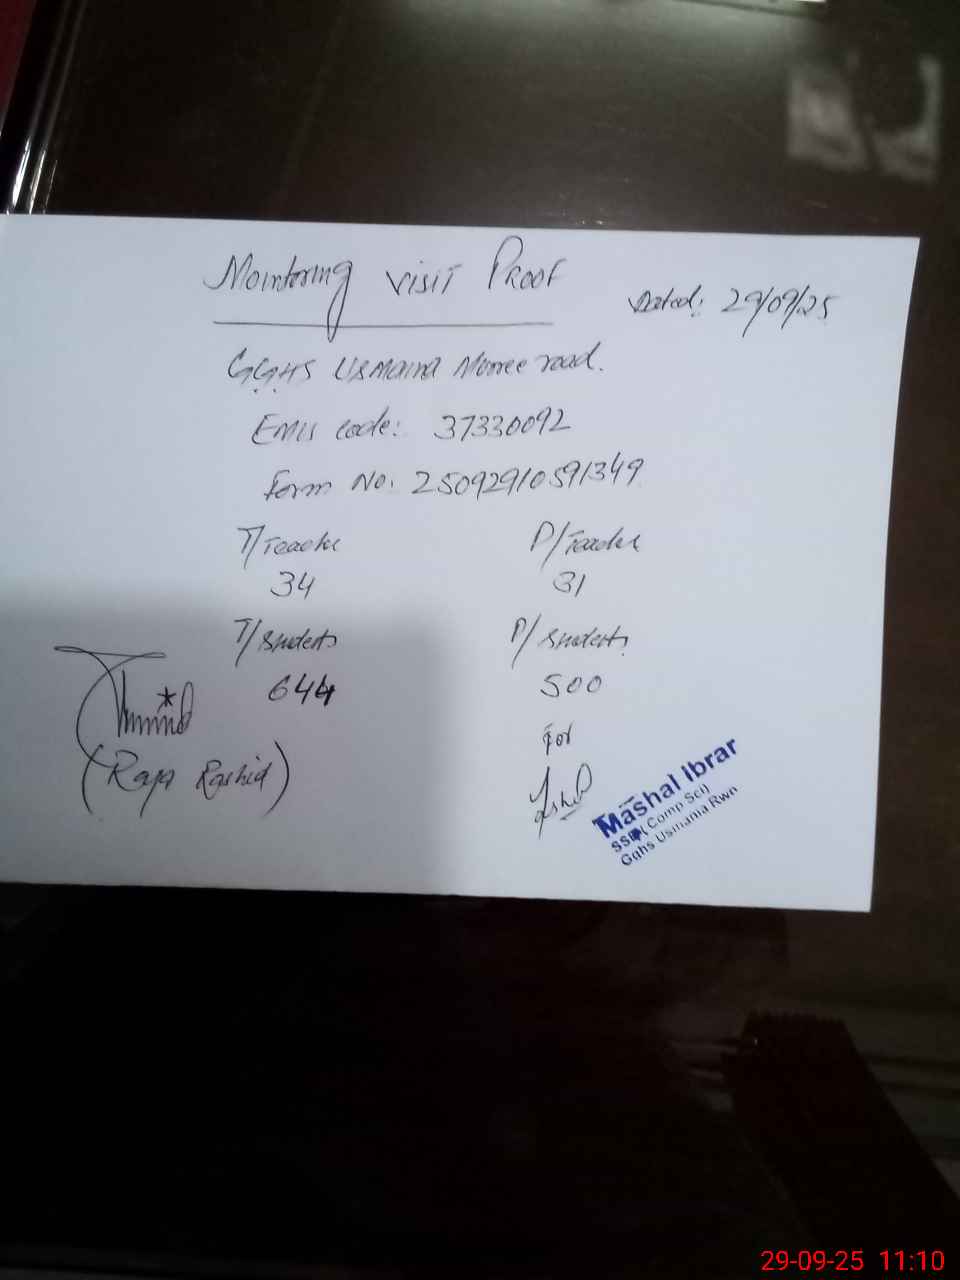 Monitoring visit Proof
Dated: 29/09/25
GGHS Usmaina Murree road.
Emis code: 37330092
Form No. 25092910591349
T/Teacher P/Teacher
34 31
T/Students P/Students
644 500
for
(Raja Rashid)
Mashal Ibrar
SSE (Comp Sci)
Gghs Usmania Rwn
29-09-25 11:10